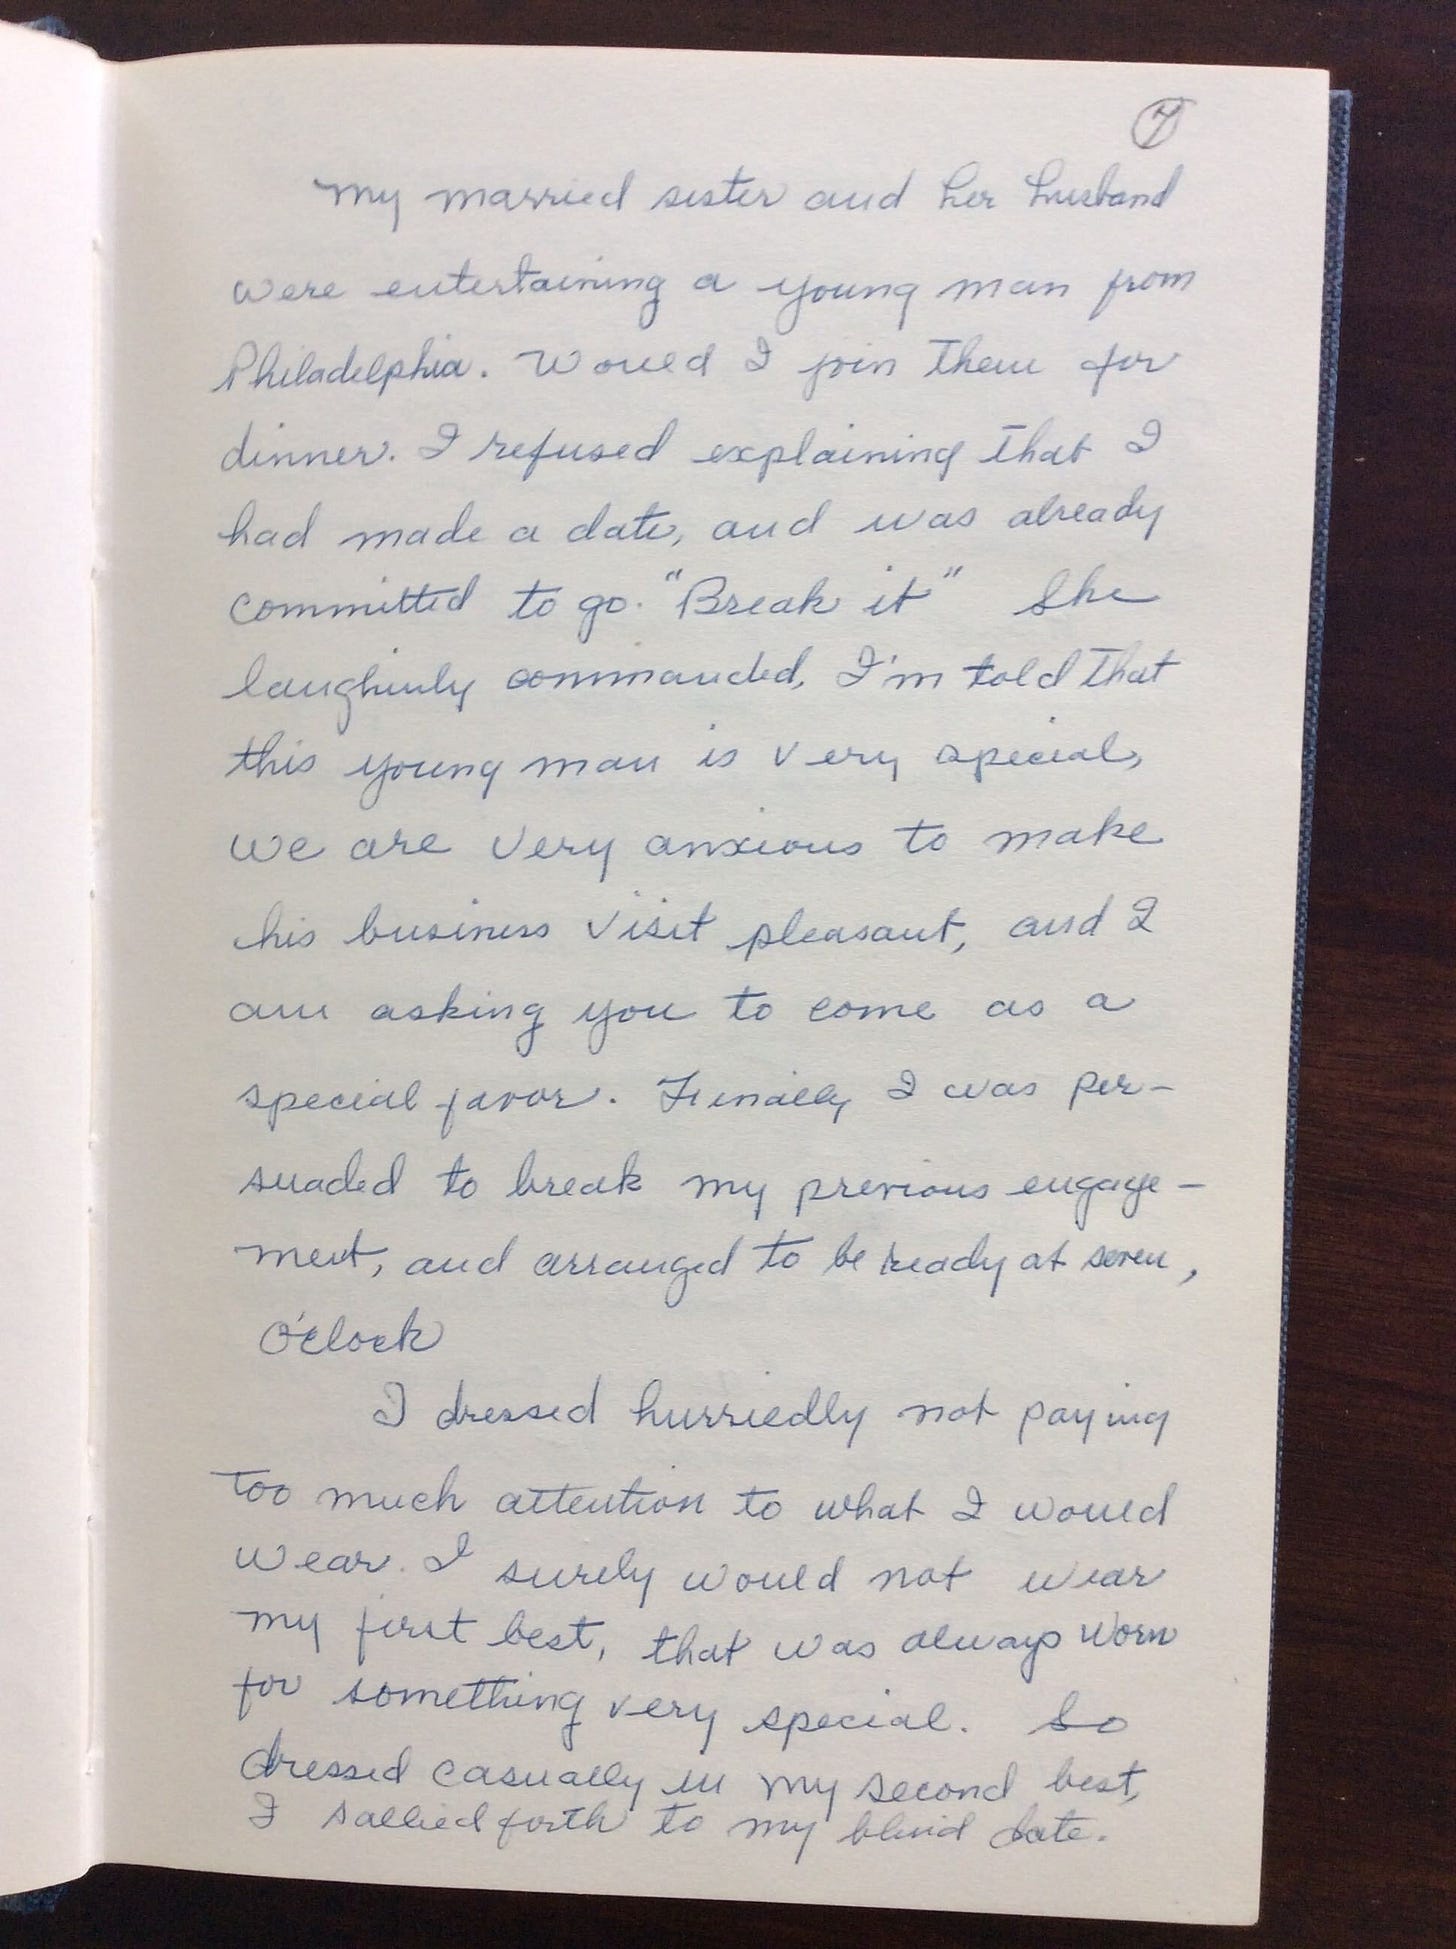 7
My married sister and her husband
were entertaining a young man from
Philadelphia. Would I join them for
dinner. I refused explaining that I
had made a date, and was already
committed to go. "Break it" She
laughinly commanded, I'm told that
this young man is very special,
we are very anxious to make
his business visit pleasant, and I
am asking you to come as a
special favor. Finally I was per-
suaded to break my previous engage-
ment, and arranged to be ready at seven,
O'clock
I dressed hurriedly not paying
too much attention to what I would
wear. I surely would not wear
my first best, that was always worn
for something very special. So
dressed casually in my second best,
I sallied forth to my blind date.